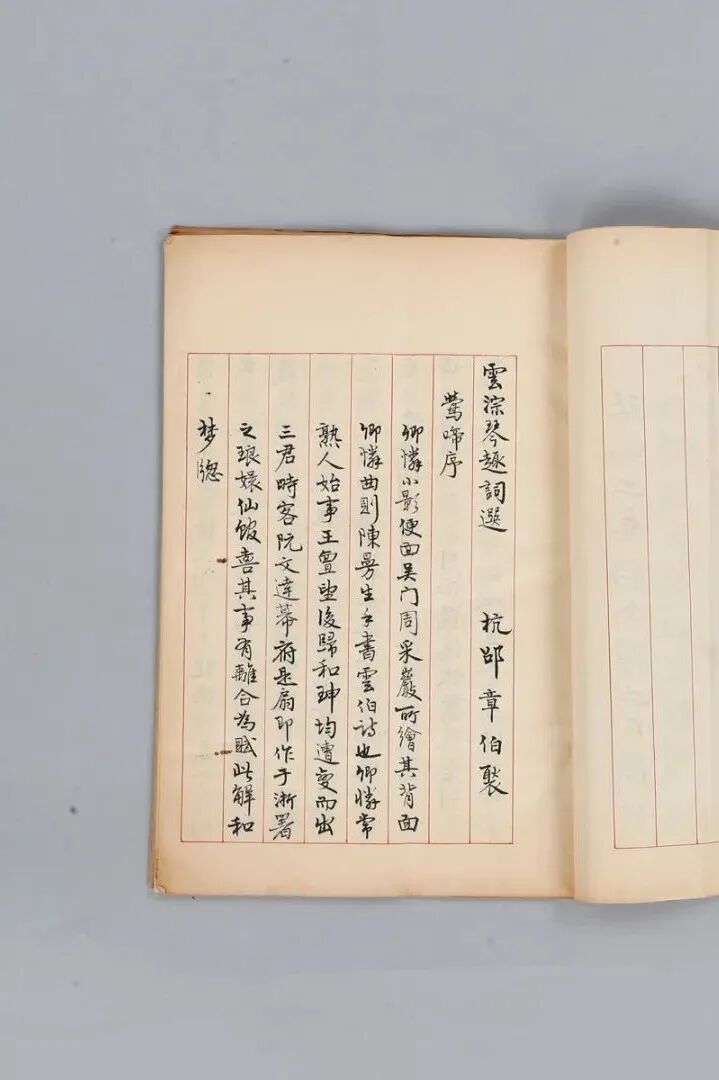 雲淙琴趣詞選 杭邵章伯褧
鶯啼序
卿憐小影便面吴门周采巖所繪其背面
卿憐曲則陳曼生手書雲伯詩也卿憐常
熟人始事王亶望後歸和珅均遭變而出
三君時客阮文達幕府是扇即作于浙署
之琅嬛仙館喜其事有離合為賦此解和
梦窗